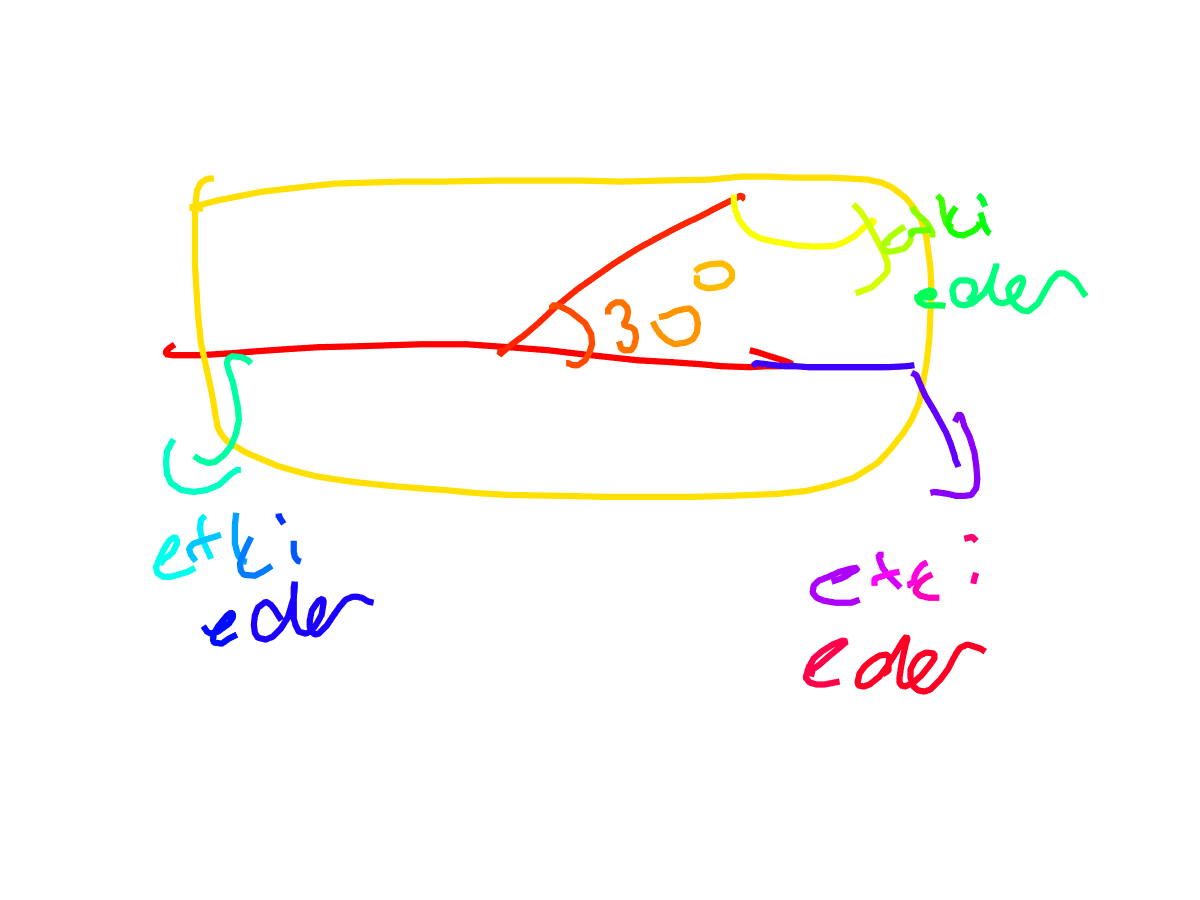 etki
eder
30°
etki
eder
etki
eder